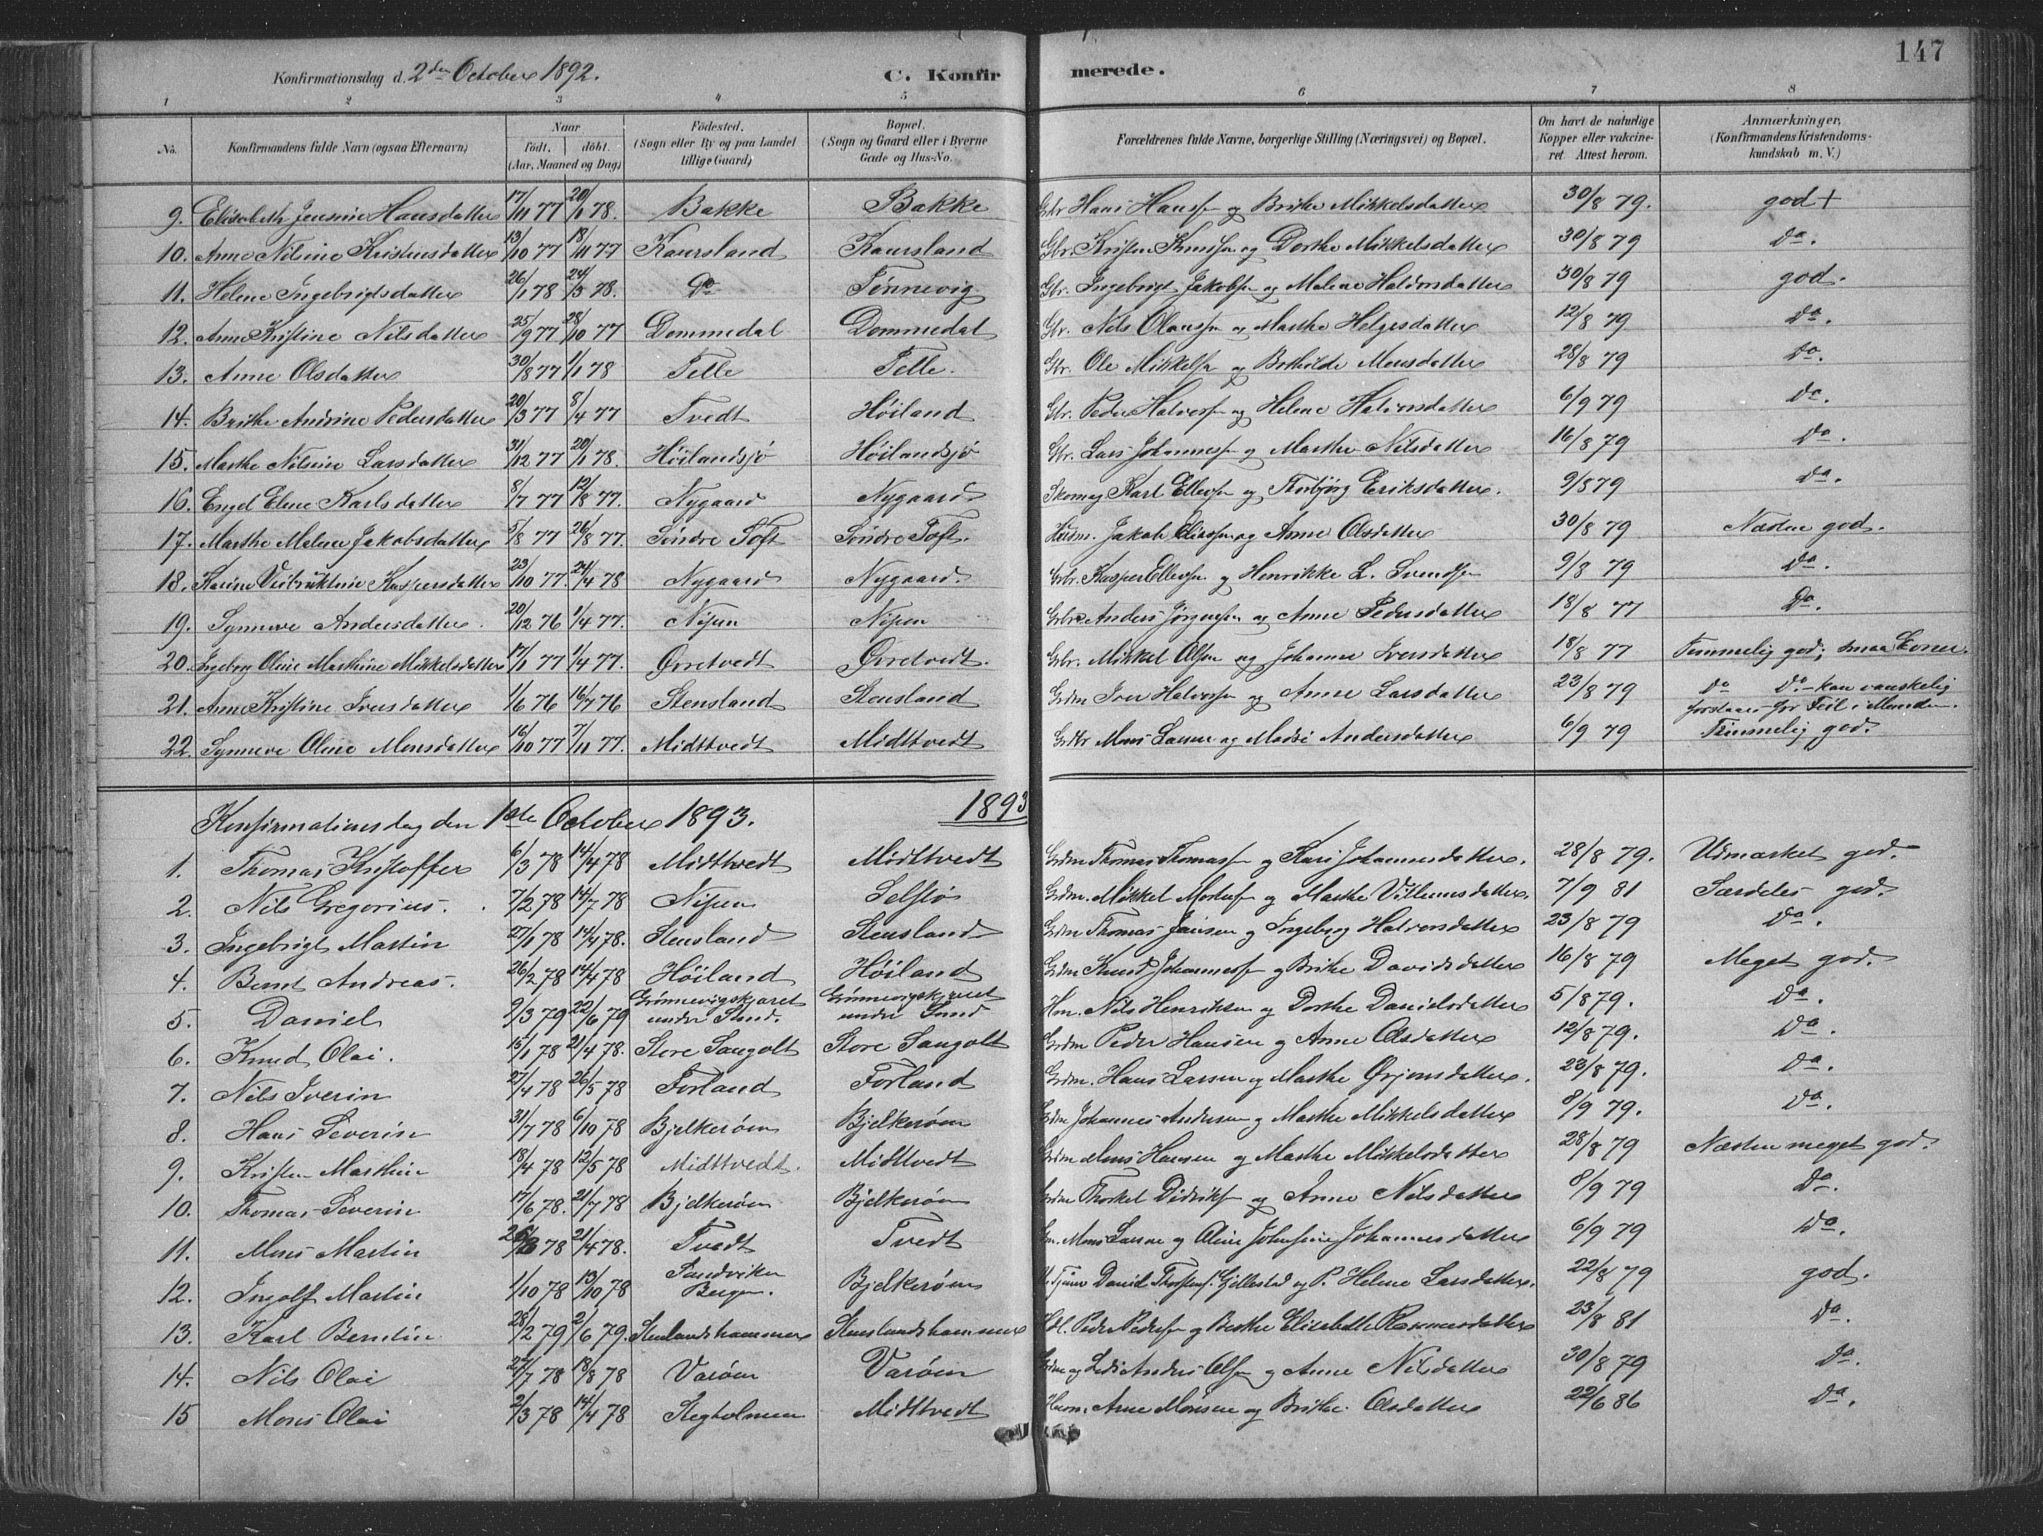 147
Konfirmationsdag d. 2den October 1892. C. Konfirmerede.
1 2 3 4 5 6 7 8
No. Konfirmandens fulde Navn (ogsaa Efternavn) Naar født. døbt. (Aar, Maaned og Dag) Fødested. (Sogn eller By og paa Landet tillige Gaard) Bopæl. (Sogn og Gaard eller i Byerne Gade og Hus-No. Forældrenes fulde Navne, borgerlige Stilling (Næringsvei) og Bopæl. Om havt de naturlige Kopper eller vakcineret Attest herom. Anmærkninger, (Konfirmandens Kristendomskundskab m. V.)
9. Elisabeth Jensine Hansdatter 17/11 77 20/1 78. Bakke Bakke Gbr Hans Hanss og Brithe Mikkelsdatter 30/8 79. god +
10. Anne Nilsine Kristensdatter 13/10 77 18/11 77 Kaursland Kaursland Gbr. Kristen Knuss og Dorthe Mikkelsdatter 30/8 79 Do.
11. Helene Ingebrigtsdatter 26/1 78 24/3 78. Do Tønnevig Gbr. Ingebrigt Jakobs og Malene Halvorsdatter 30/8 79 god.
12. Anne Kristine Nilsdatter 25/9 77 28/10 77 Dommedal Dommedal Gbr. Nils Olauss og Marthe Helgesdatter 12/8 79 Do.
13. Anne Olsdatter 30/8 77 1/1 78 Telle Telle. Gbr. Ole Mikkels og Bothilde Monsdatter 28/8 79 Do.
14. Brithe Andrine Pedersdatter 20/3 77 8/4 77 Tvedt Høiland Gbr. Peder Halvors og Helene Halvorsdatter 6/9 79 Do.
15. Marthe Nilsine Larsdatter 31/12 77 20/1 78. Høilandsjø Høilandsjø Gbr. Lars Johanness og Marthe Nilsdatter 16/8 79 Do.
16. Engel Elene Karlsdatter 8/7 77 12/8 77. Nygaard Nygaard Skomag Karl Ellefs og Thorbjørg Eriksdatter. 9/8 79 Do.
17. Marthe Malene Jakobsdatter 5/8 77 26/8 77. Søndre Toft Søndre Toft. Husm. Jakob Eliass og Anne Olsdatter 30/8 79 Næsten god.
18. Karine Kaspersdatter 23/10 77. 24/4 78 Nygaard Nygaard. Grbr. Kasper Ellefs og Henrikke L. Svends 9/8 79 Do.
19. Synneve Andersdatter. 20/12 76 1/4 77. Nipen Nipen Grbr. Anders Jørgens og Anne Pedersdatter 18/8 77 Do.
20. Ingeborg Oline Marthine Mikkelsdatter 17/1 77 1/4 77. Ørretvedt Ørretvedt. Grbr. Mikkel Ols og Johanne Iversdatter 18/8 77 Temmelig god; smaa Evner.
21. Anne Kristine Iversdatter 1/6 76 16/7 76 Stensland Stensland Grdm Iver Halvors og Anne Larsdatter 23/8 79 Do Do. - kan vanskelig forstaaes for Feil i Munden.
22. Synneve Oline Monsdatter 16/10 77 7/11 77. Midttvedt Midttvedt Grbr Mons Larsen og Madsi Andersdatter 6/9 79 Temmelig god.
1893
Konfirmationsdag den 1ste October 1893.
1. Thomas Kristoffer 6/3 78 14/4 78 Midttvedt Midttvedt Grdm Thomas Thomass og Kari Johannesdatter. 28/8 79. Udmærket god.
2. Nils Gregorius. 7/2 78 14/7 78 Nipen Selstø Grdm. Mikkel Mortens og Marthe Villumsdatter. 7/9 81 Særdeles god.
3. Ingebrigt Martin 27/1 78 14/4 78. Stensland Stensland Grdm Thomas Jansen og Ingeborg Halvorsdatter 23/8 79 Do.
4. Bernt Andreas. 26/2 78 14/4 78 Høiland Høiland Grdm Knud Johanness og Brithe Davidsdatter 16/8 79 Meget god.
5. Daniel 9/3 79 22/6 79 Grønnevigskjæret under Sund. Grønnevigskjæret under Sund Hm. Nils Henriksen og Dorthe Danielsdatter 5/8 79. Do.
6. Knud Olai. 15/1 78 21/4 78. Store Sangolt Store Sangolt Grdm Peder Hansen og Anne Olsdatter 12/8 79. Do.
7. Nils Iverin 27/4 78 26/5 78 Forland Forland Grdm. Hans Larsen og Marthe Ørjansdatter. 23/8 79. Do.
8. Hans Severin 31/7 78 6/10 78 Bjelkerøen Bjelkerøen Grdm Johannes Andersen og Marthe Mikkelsdatter 8/9 79. Do.
9. Kristen Marthin 18/4 78 12/5 78 Midttvedt. Midttvedt Grdm Mons Hansen og Marthe Mikkelsdatter 28/8 79 Næsten meget god.
10. Thomas Severin 17/6 78. 21/7 78 Bjelkerøen Bjelkerøen Grdm Thorkel Didriks og Anne Nilsdatter 8/9 79 Do.
11. Mons Martin 78 21/4 78. Tvedt Tvedt Gm. Mons Larsen og Oline Johannesdatter 6/9 79 Do.
12. Ingolf Martin 1/10 78 13/10 78 Sandviken Bergen. Bjelkerøen Daniel Thorstens. Gjellestad og P. Helene Larsdatter. 22/8 79 god.
13. Karl Berntin 28/2 79 2/6 79. Stenslandshammer Stenslandshammer Peder Peders og Berthe Elisabeth Rasmusdatter 23/8 81 Do.
14. Nils Olai 27/7 78 18/8 78 Varøen Varøen Grdm og Anders Ols og Anne Nilsdatter 30/8 79 Do.
15 Mons Olai 2/3 78 14/4 78 Stegholmen Midttvedt Husm. Arne Monsen og Brithe Olsdatter 22/6 86 Do.